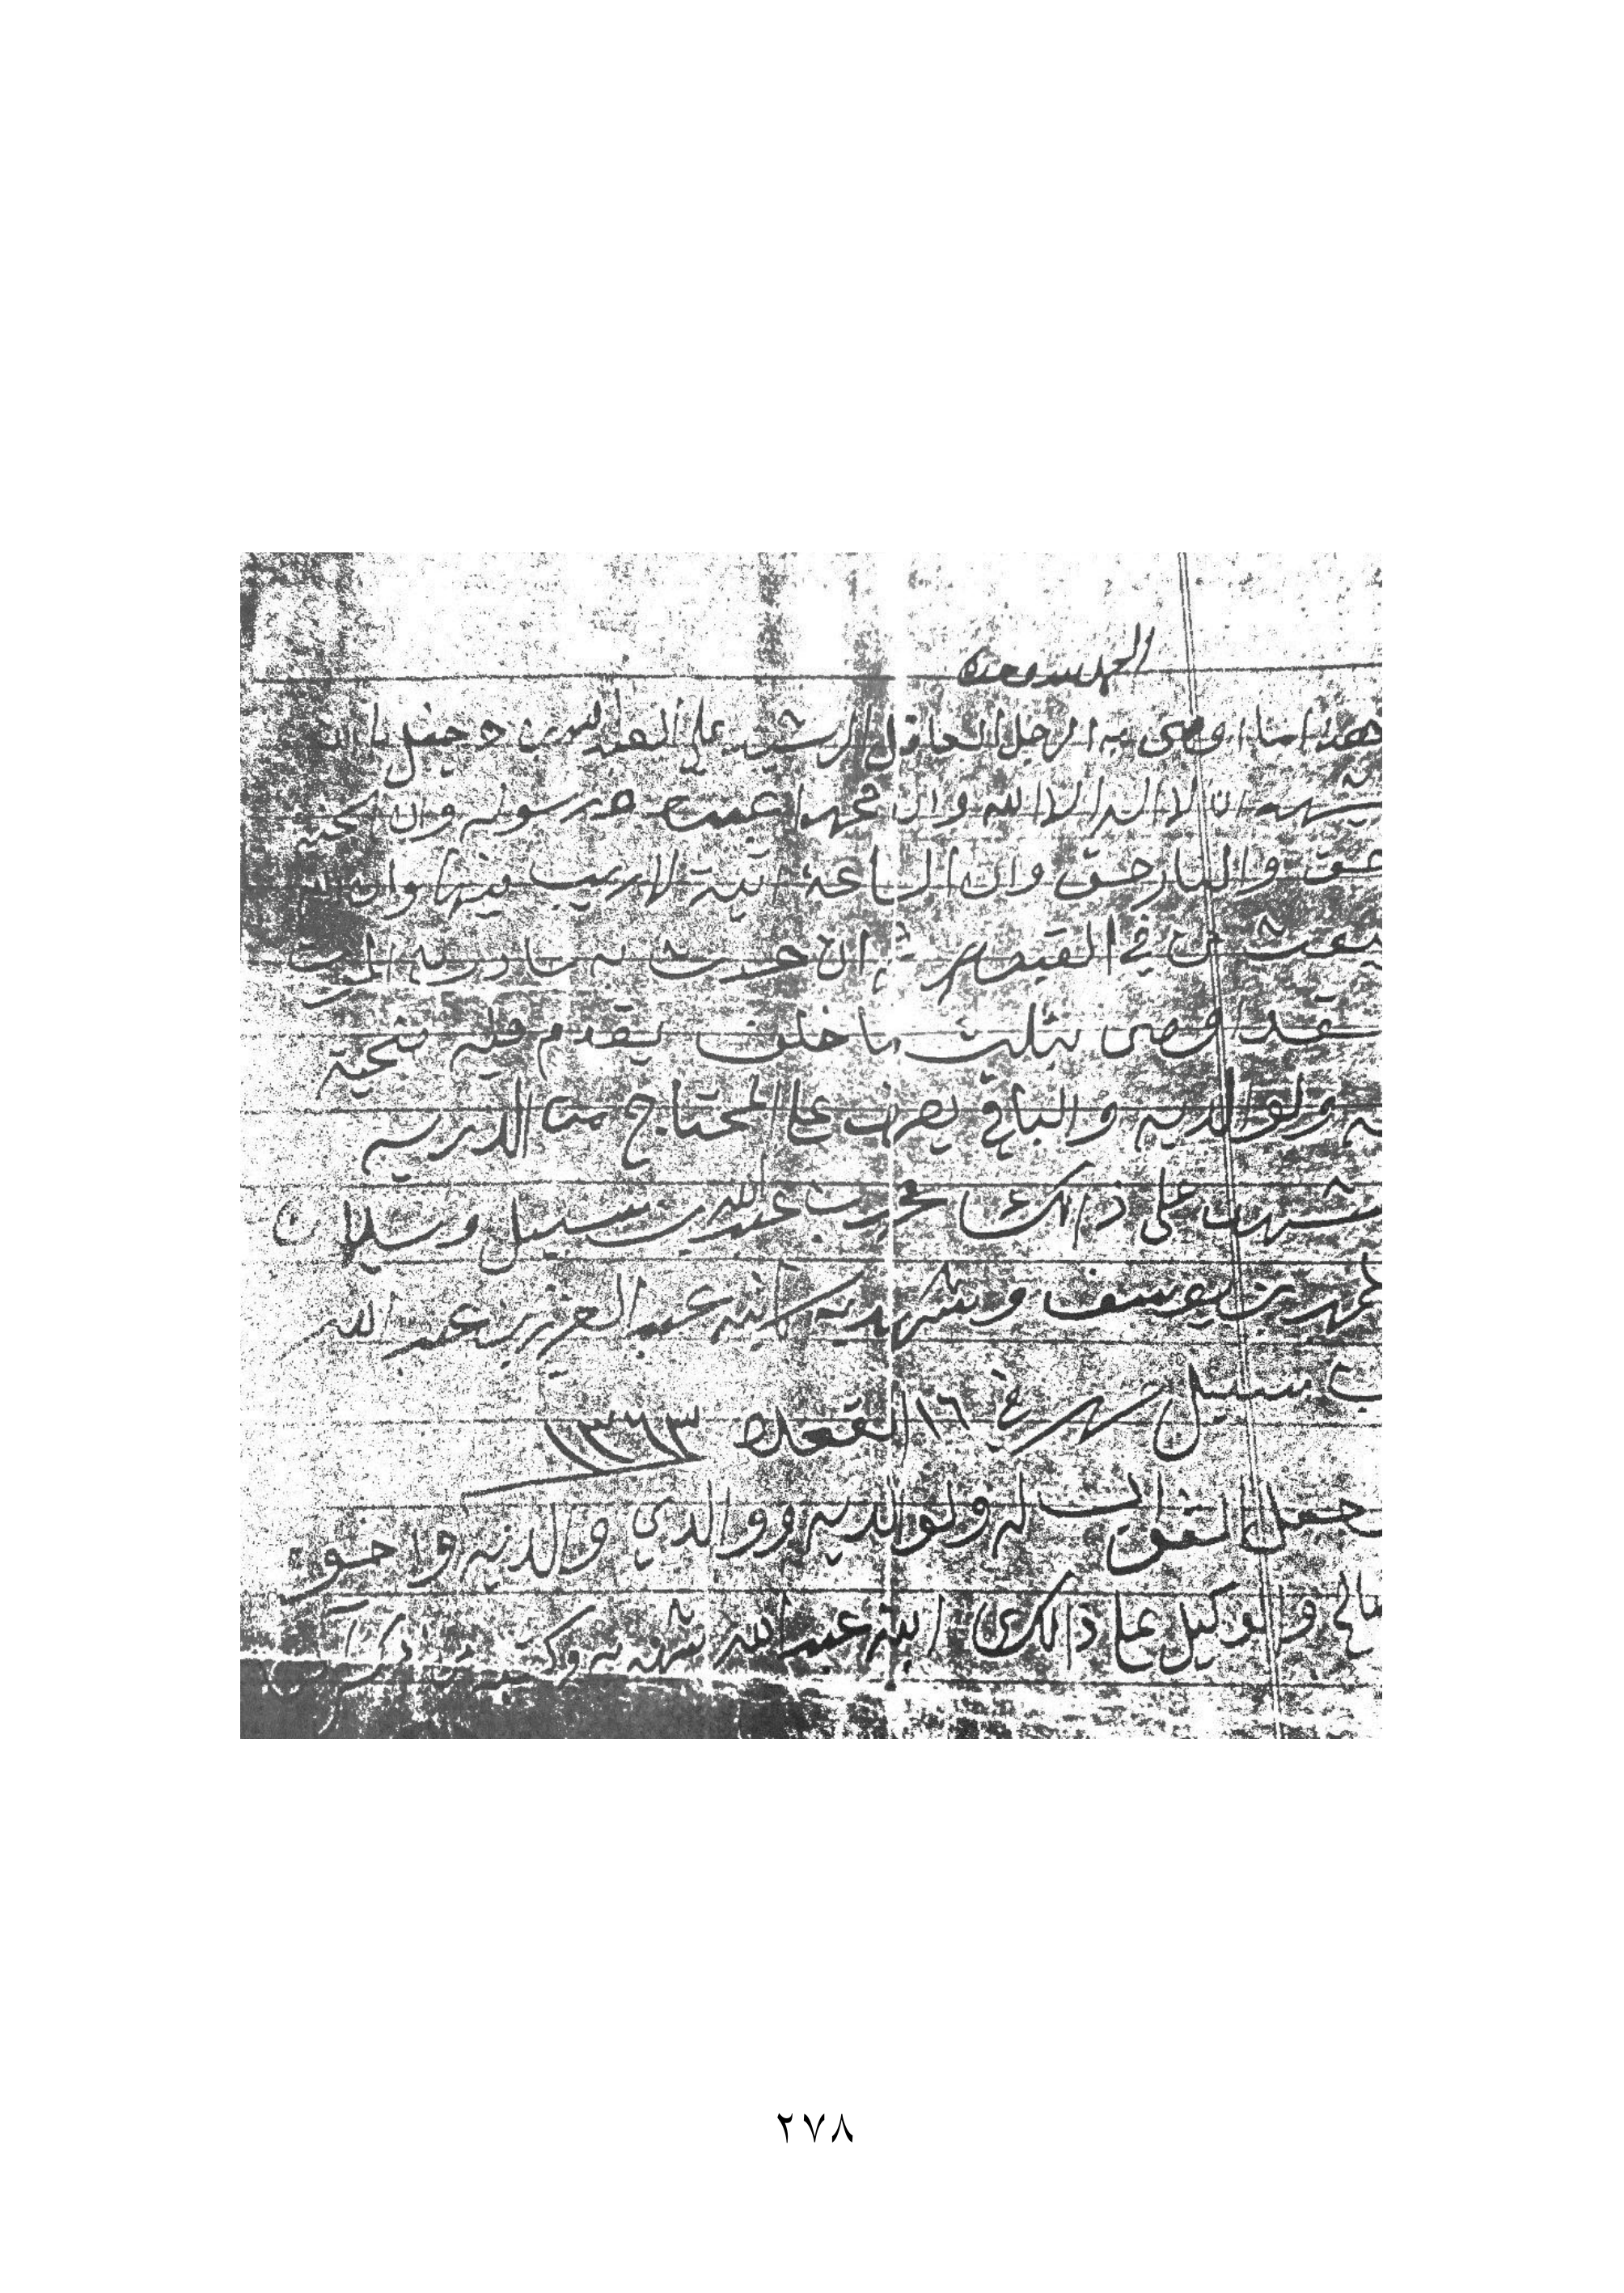 الحمد لله وحده
هذا ما اوصى به الرجل العاقل الرشيد علي
يشهد ان لا اله الا الله وان محمد عبده ورسوله وان الجنه
حق والنار حق وان الساعة اتية لاريب فيها وان الله
في القبور ثم ان حدث به حادث الموت
فقد اوصى بثلث ما خلف يقدم فيه ضحية
له ولوالديه والباقي يصرف على المحتاج من الذريه
شهد على ذالك محمد بن عبدالله بن سبيل وسليمان
الحمد بن يوسف وشهد به كاتبه عبد العزيز بن عبد الله
بن سبيل في ١٦ القعده ١٣٦٣
الثواب له ولوالديه ووالدي والديه واخوه
صالح والوكيل على ذالك ابنه عبد الله شهد به وكتبه
٢٧٨